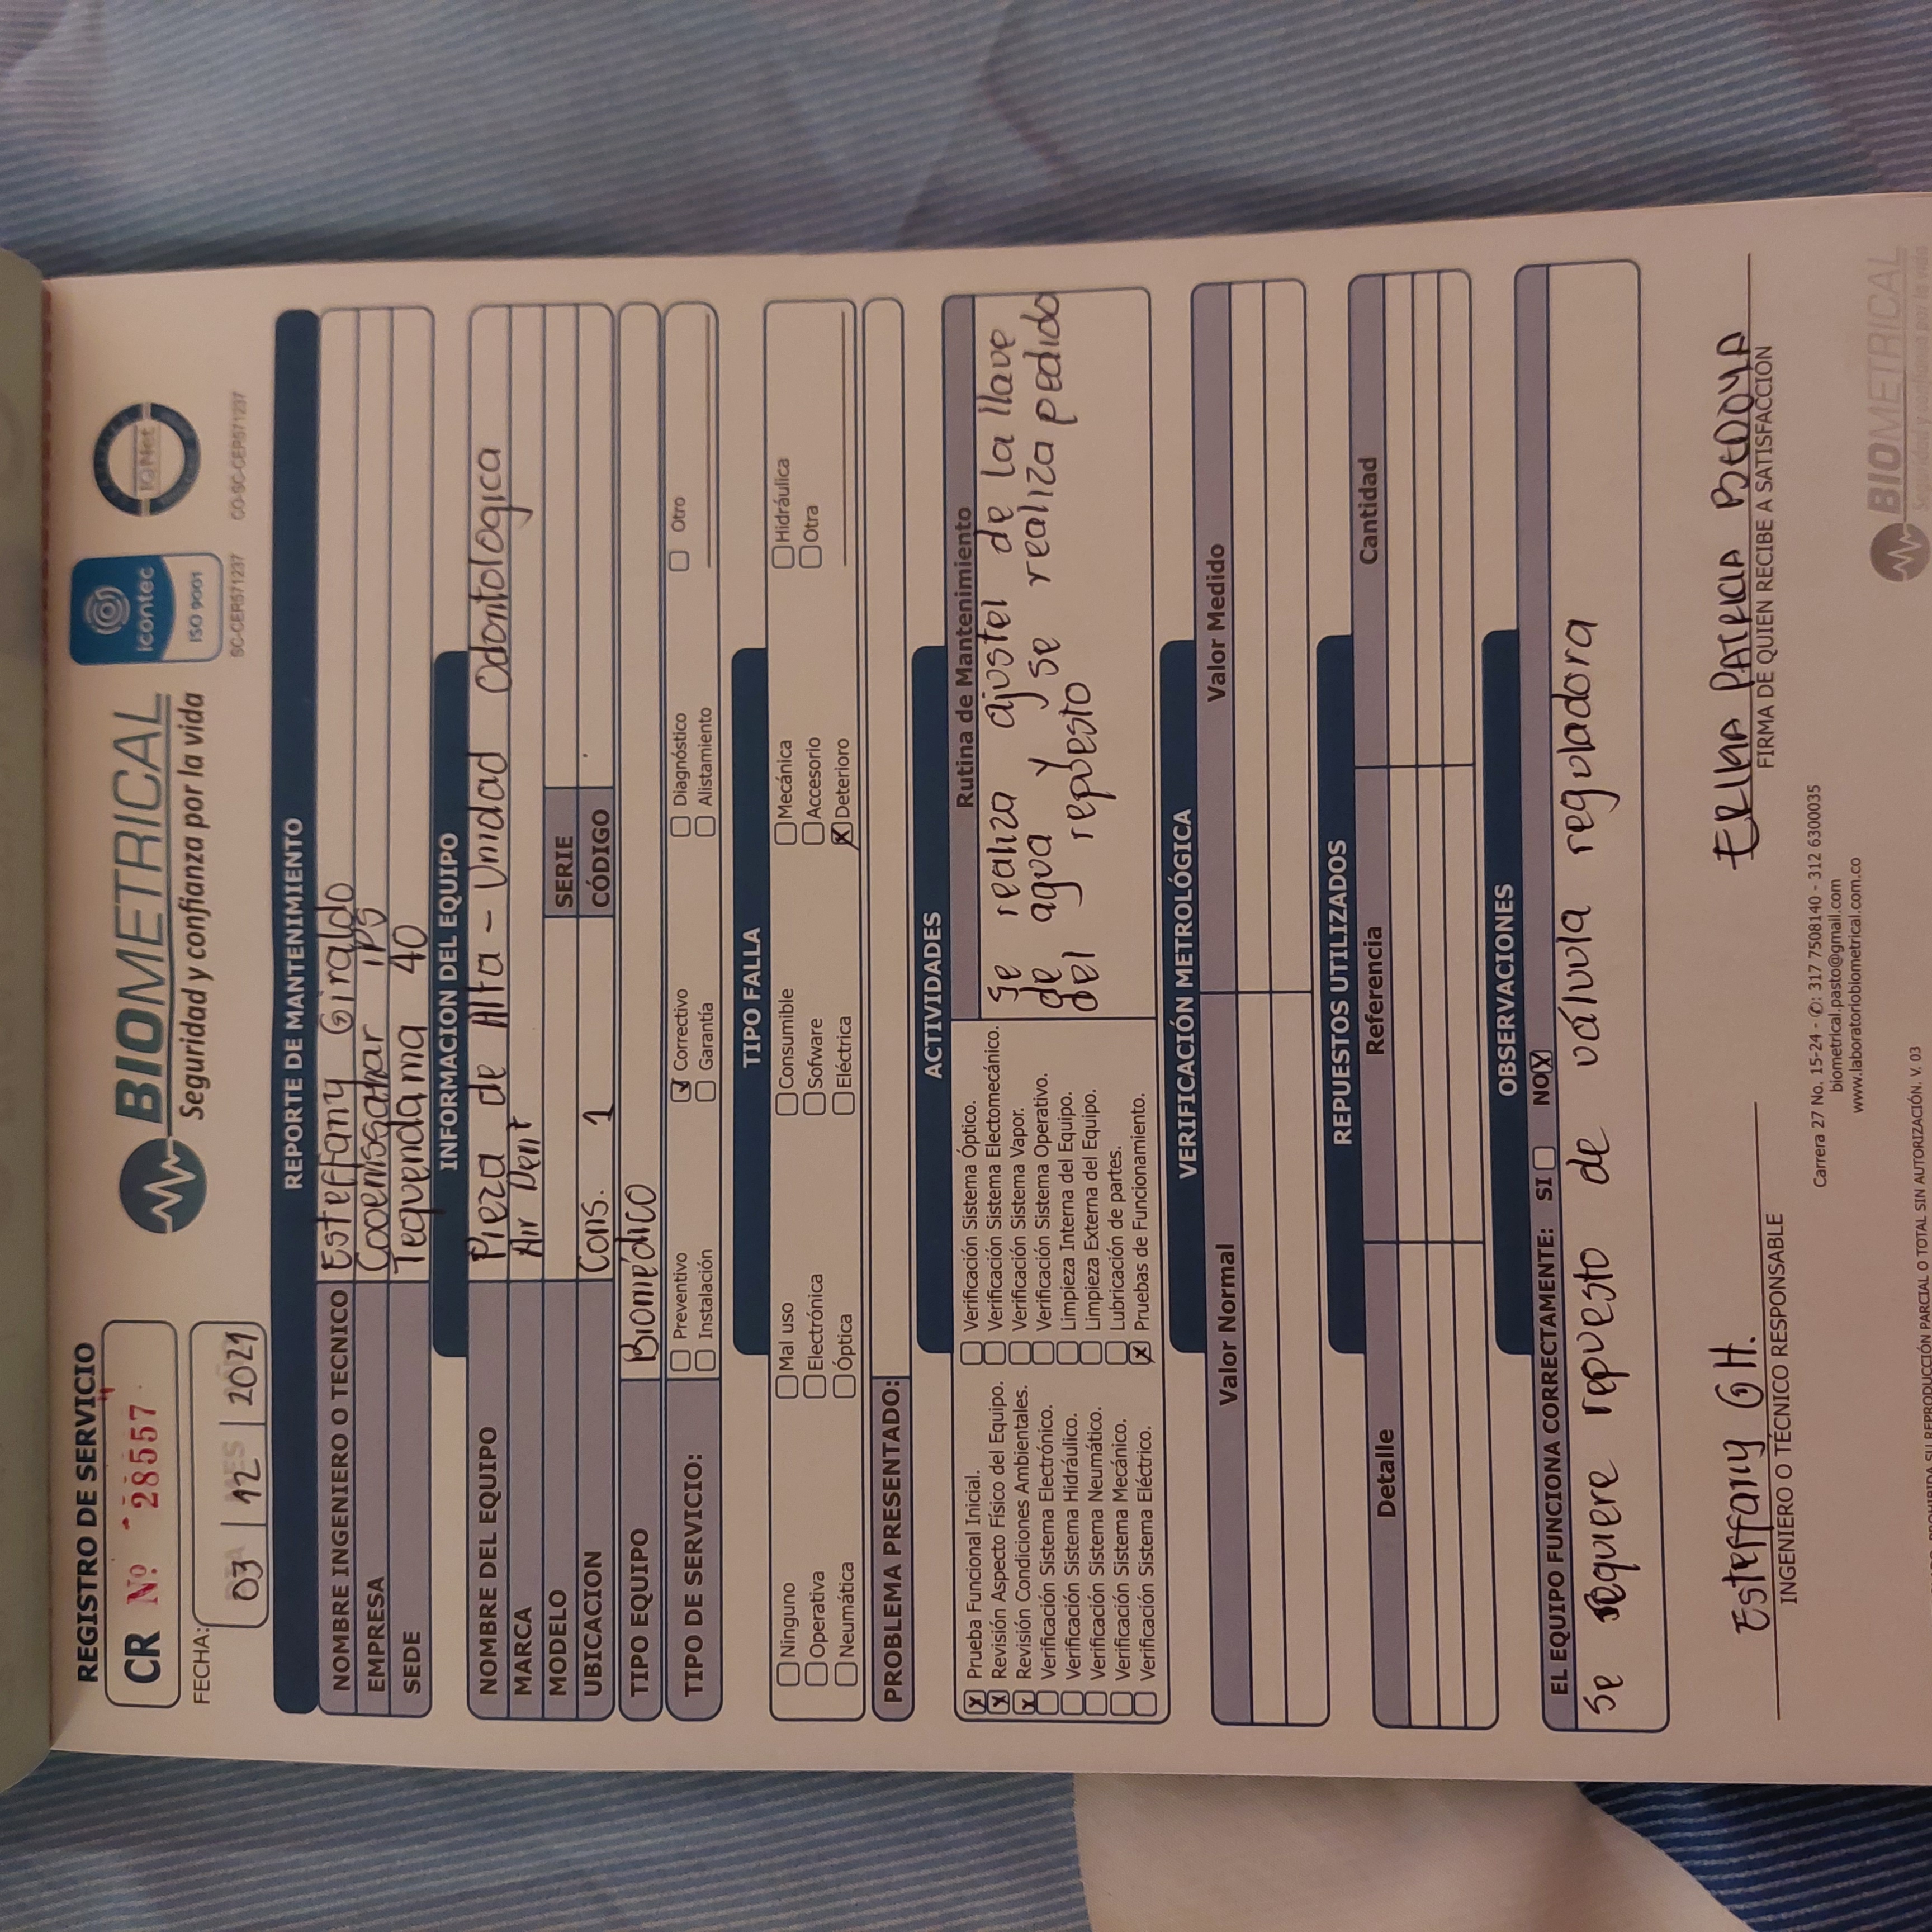 REGISTRO DE SERVICIO
CR Nº 28557
FECHA: 03 | 12 | 2021
BIOMETRICAL
Seguridad y confianza por la vida
icontec
ISO 9001
SC-CER571237
IQNet
CO-SC-CER571237
REPORTE DE MANTENIMIENTO
NOMBRE INGENIERO O TECNICO Esteffany Giraldo
EMPRESA Cooemssanar IPS
SEDE Tequendama 40
INFORMACION DEL EQUIPO
NOMBRE DEL EQUIPO Pieza de Alta - Unidad Odontologica
MARCA Air Dent
MODELO SERIE
UBICACION Cons. 1 CÓDIGO
TIPO EQUIPO Biomédico
TIPO DE SERVICIO:
Preventivo Correctivo Diagnóstico Otro
Instalación Garantía Alistamiento
TIPO FALLA
Ninguno Mal uso Consumible Mecánica Hidráulica
Operativa Electrónica Sofware Accesorio Otra
Neumática Óptica Eléctrica Deterioro
PROBLEMA PRESENTADO:
ACTIVIDADES
Prueba Funcional Inicial.
Revisión Aspecto Físico del Equipo.
Revisión Condiciones Ambientales.
Verificación Sistema Electrónico.
Verificación Sistema Hidráulico.
Verificación Sistema Neumático.
Verificación Sistema Mecánico.
Verificación Sistema Eléctrico.
Verificación Sistema Óptico.
Verificación Sistema Electomecánico.
Verificación Sistema Vapor.
Verificación Sistema Operativo.
Limpieza Interna del Equipo.
Limpieza Externa del Equipo.
Lubricación de partes.
Pruebas de Funcionamiento.
Rutina de Mantenimiento
Se realiza ajustel de la llave
de agua y se realiza pedido
del repuesto
VERIFICACIÓN METROLÓGICA
Valor Normal Valor Medido
REPUESTOS UTILIZADOS
Detalle Referencia Cantidad
OBSERVACIONES
EL EQUIPO FUNCIONA CORRECTAMENTE: SI NO X
Se requiere repuesto de válvula reguladora
Esteffany GH.
INGENIERO O TÉCNICO RESPONSABLE
ERIKA PATRICIA BEDOYA
FIRMA DE QUIEN RECIBE A SATISFACCIÓN
Carrera 27 No. 15-24 - ✆: 317 7508140 - 312 6300035
biometrical.pasto@gmail.com
www.laboratoriobiometrical.com.co
PROHIBIDA SU REPRODUCCIÓN PARCIAL O TOTAL SIN AUTORIZACIÓN. V. 03
BIOMETRICAL
Seguridad y confianza por la vida